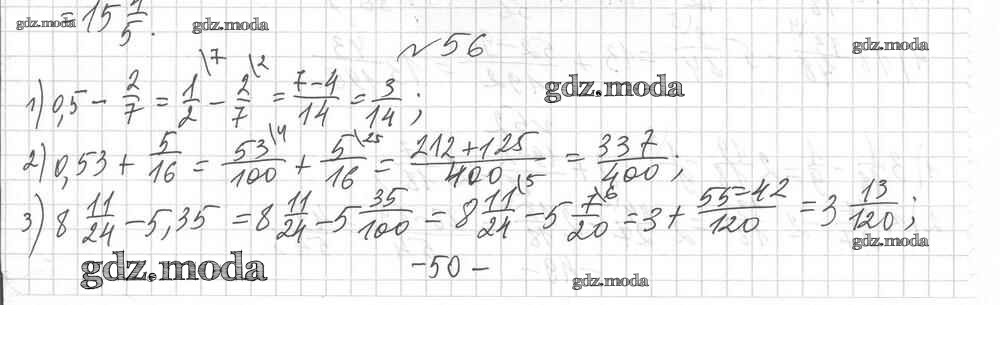 = 15 1/5.
gdz.moda gdz.moda
№56
gdz.moda
gdz.moda
1) 0,5 − 2/7 = 1/2 \7 − 2/7 \2 = 7−4/14 = 3/14 ;
2) 0,53 + 5/16 = 53/100 \4 + 5/16 \25 = 212+125/400 = 337/400 ;
3) 8 11/24 − 5,35 = 8 11/24 − 5 35/100 = 8 11/24 \5 − 5 7/20 \6 = 3 + 55−42/120 = 3 13/120 ;
gdz.moda
gdz.moda
−50−
gdz.moda